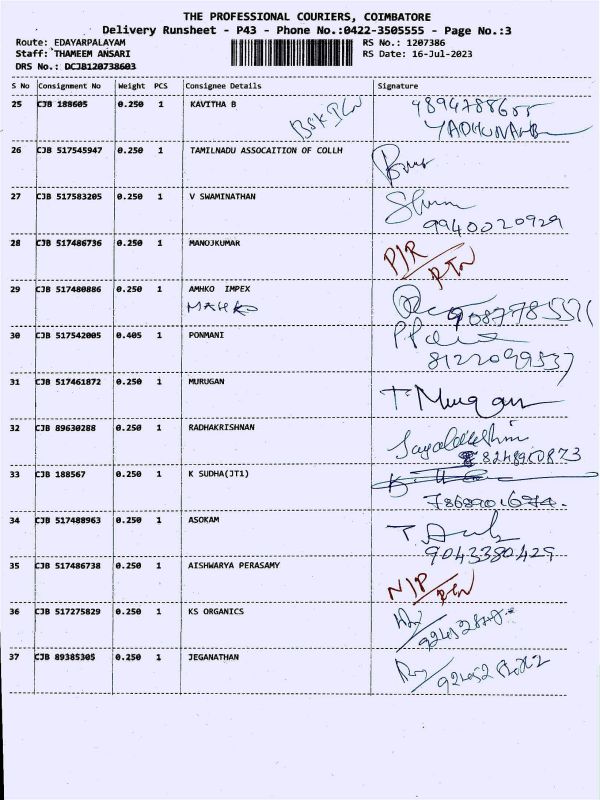 THE PROFESSIONAL COURIERS, COIMBATORE
Delivery Runsheet - P43 - Phone No.:0422-3505555 - Page No.:3
Route: EDAYARPALAYAM RS No.: 1207386
Staff: THAMEEM ANSARI RS Date: 16-Jul-2023
DRS No.: DCJB120738603
S No Consignment No Weight PCS Consignee Details Signature
25 CJB 188605 0.250 1 KAVITHA B
26 CJB 517545947 0.250 1 TAMILNADU ASSOCAITION OF COLLH
27 CJB 517583205 0.250 1 V SWAMINATHAN
9940020929
28 CJB 517486736 0.250 1 MANOJKUMAR
29 CJB 517480886 0.250 1 AMHKO IMPEX
MAHKO
30 CJB 517542005 0.405 1 PONMANI
8122099537
31 CJB 517461872 0.250 1 MURUGAN
T. Murugan
32 CJB 89630288 0.250 1 RADHAKRISHNAN
33 CJB 188567 0.250 1 K SUDHA(JT1)
34 CJB 517488963 0.250 1 ASOKAM
9043380429
35 CJB 517486738 0.250 1 AISHWARYA PERASAMY
36 CJB 517275829 0.250 1 KS ORGANICS
37 CJB 89385305 0.250 1 JEGANATHAN